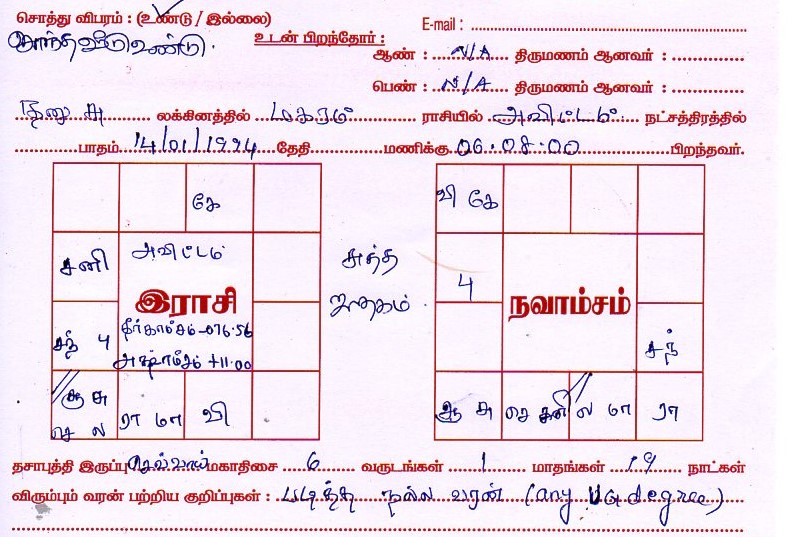 சொத்து விபரம் : (உண்டு / இல்லை)
E-mail :
சொந்த வீடு உண்டு.
உடன் பிறந்தோர் :
ஆண் : N/A திருமணம் ஆனவர் :
பெண் : N/A திருமணம் ஆனவர் :
தனுசு லக்கினத்தில் மகரம் ராசியில் அவிட்டம் நட்சத்திரத்தில்
பாதம் 14/01/1994 தேதி மணிக்கு 06.08.00 பிறந்தவர்.
கே
வி கே
சனி
அவிட்டம்
சுத்த
ஜாதகம்
பு
இராசி
நவாம்சம்
சந் பு
தீர்காம்சம் - 076.56
அக்ஷாம்சம் +11.00
சந்
சூ சு
செ ல
ரா மா
வி
சூ சு
செ சனி
ல மா
ரா
தசாபுத்தி இருப்பு செவ்வாய் மகாதிசை 6 வருடங்கள் 1 மாதங்கள் 19 நாட்கள்
விரும்பும் வரன் பற்றிய குறிப்புகள் : படித்த நல்ல வரன் (any UG degree)